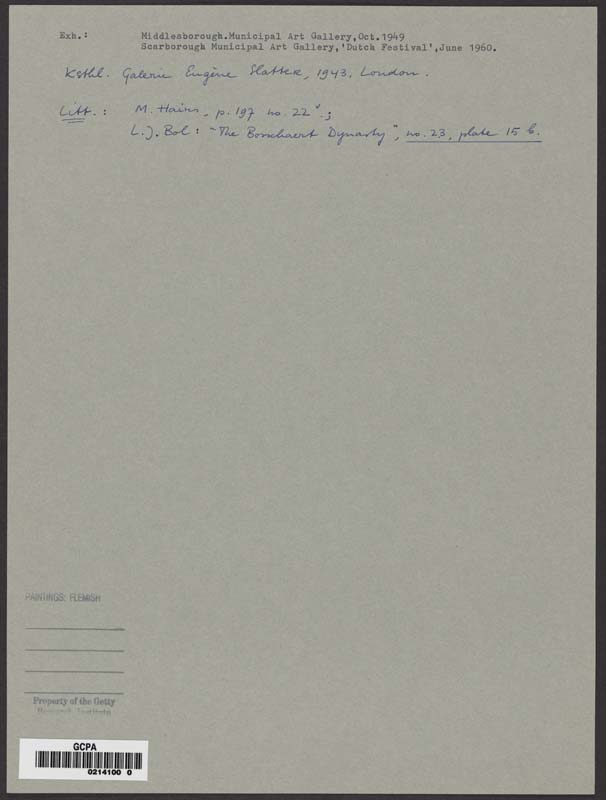 Exh.: Middlesborough.Municipal Art Gallery,Oct.1949
Scarborough Municipal Art Gallery,'Dutch Festival',June 1960.
Ksthl. Galerie Eugène Slatter, 1943, London.
Litt.: M. Hairs, p. 197 no. 22.;
L.J. Bol: "The Bosschaert Dynasty", no. 23, plate 15 b.
PAINTINGS: FLEMISH
Property of the Getty
Research Institute
GCPA
0214100 0